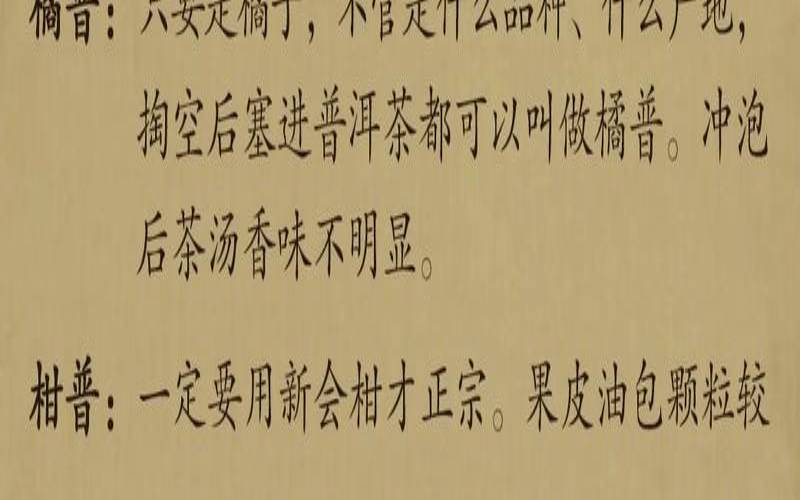 橘普：只要是橘子，不管是什么品种、什么产地，
掏空后塞进普洱茶都可以叫做橘普。冲泡
后茶汤香味不明显。
柑普：一定要用新会柑才正宗。果皮油包颗粒较